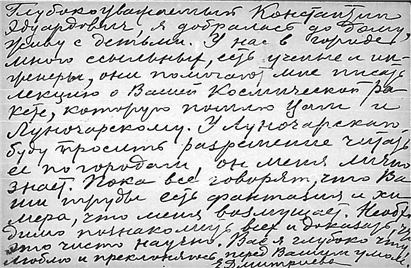 Глубокоуважаемый Константин
Эдуардович, я добралась до дому
живу с детьми. У нас в городе
много ссыльных, есть ученые и ин-
женеры, они помогают мне писать
лекцию о Вашей Космической ра-
кете, которую пошлю Вам и
Луначарскому. У Луначарского
буду просить разрешение читать
ее по городам, он меня лично
знает. Пока все говорят, что Ва-
ши труды есть фантазия и хи-
мера, что меня возмущает. Необхо-
димо познакомить всех и доказать, что
это чисто научно. Вас я глубоко чту
люблю и преклоняюсь перед Вашим умом.
Дмитриева